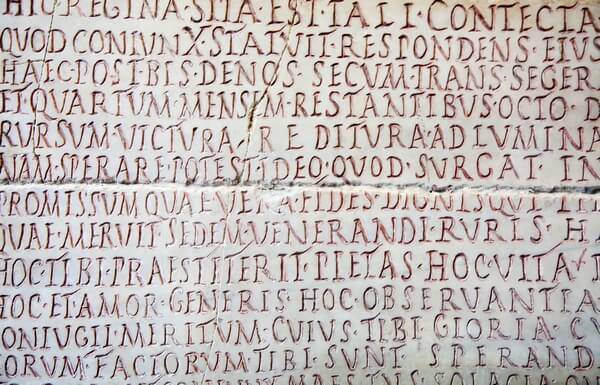 HIC·REGINA·SITA·EST·TALI·CONTECTA
QUOD·CONIUNX·STATUIT·RESPONDENS·EIUS
HAEC·POST·BIS·DENOS·SECVM·TRANS·SEGER
ET·QUARTUM·MENSEM·RESTANTIBUS·OCTO·D
RURSUM·VICTURA·REDITURA·AD·LUMINA
NAM·SPERARE·POTEST·IDEO·QUOD·SURGAT·IN
PROMISSUM·QUAE·VERA·FIDES·DIGNISQU
QUAE·MERVIT·SEDEM·VENERANDI·RURIS·H
HOC·TIBI·PRAESTITERIT·PIETAS·HOC·VITA
HOC·ET·AMOR·GENERIS·HOC·OBSERVANTIA
CONIUGII·MERITUM·CVIUS·TIBI·GLORIA·CV
ORUM·FACTORVM·TIBI·SUNT·SPERAND
MAESTUS·SOLAC